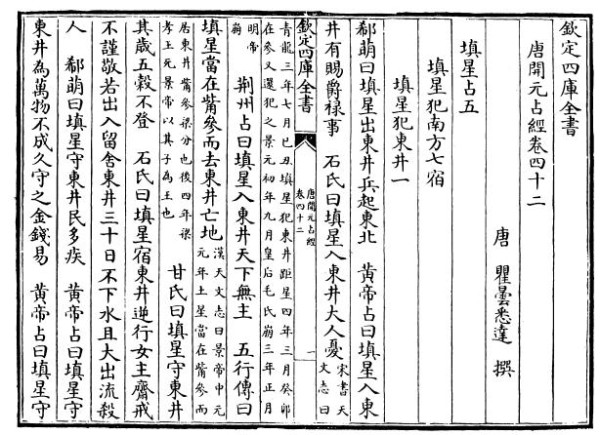 欽定四庫全書
唐開元占經卷四十二
唐 瞿曇悉達 撰
填星占五
填星犯南方七宿
填星犯東井一
郗萌曰填星出東井兵起東北 黄帝占曰填星入東
井有賜爵禄事 石氏曰填星入東井大人憂 宋書天文志曰
欽定四庫全書 唐開元占經 卷四十二 一
青龍三年七月己丑填星犯東井距星四年三月癸卯
在參又還犯之景元初年九月皇后毛氏崩三年正月
明帝崩 荆州占曰填星入東井天下無主 五行傳曰
填星當在觜參而去東井亡地 漢天文志曰景帝中元元年土星當在觜參而
居東井觜參梁分也後四年梁孝王死景帝以其子為王也 甘氏曰填星守東井
其歲五穀不登 石氏曰填星宿東井逆行女主齋戒
不謹敬若出入留舍東井三十日不下水且大出流殺
人 郗萌曰填星守東井民多疾 黄帝占曰填星守
東井為萬物不成久守之金錢易 黄帝占曰填星守